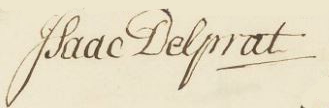 Isaac Delprat